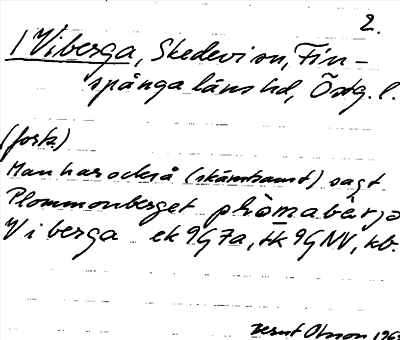 2.
Viberga, Skedevi sn, Fin-
spånga läns hd, Östg. l.
(forts.)
Man har också (skämtsamt) sagt
Plommonberget
Viberga ek 9G7a, tk 9GNV, kb.
Bernt Olsson